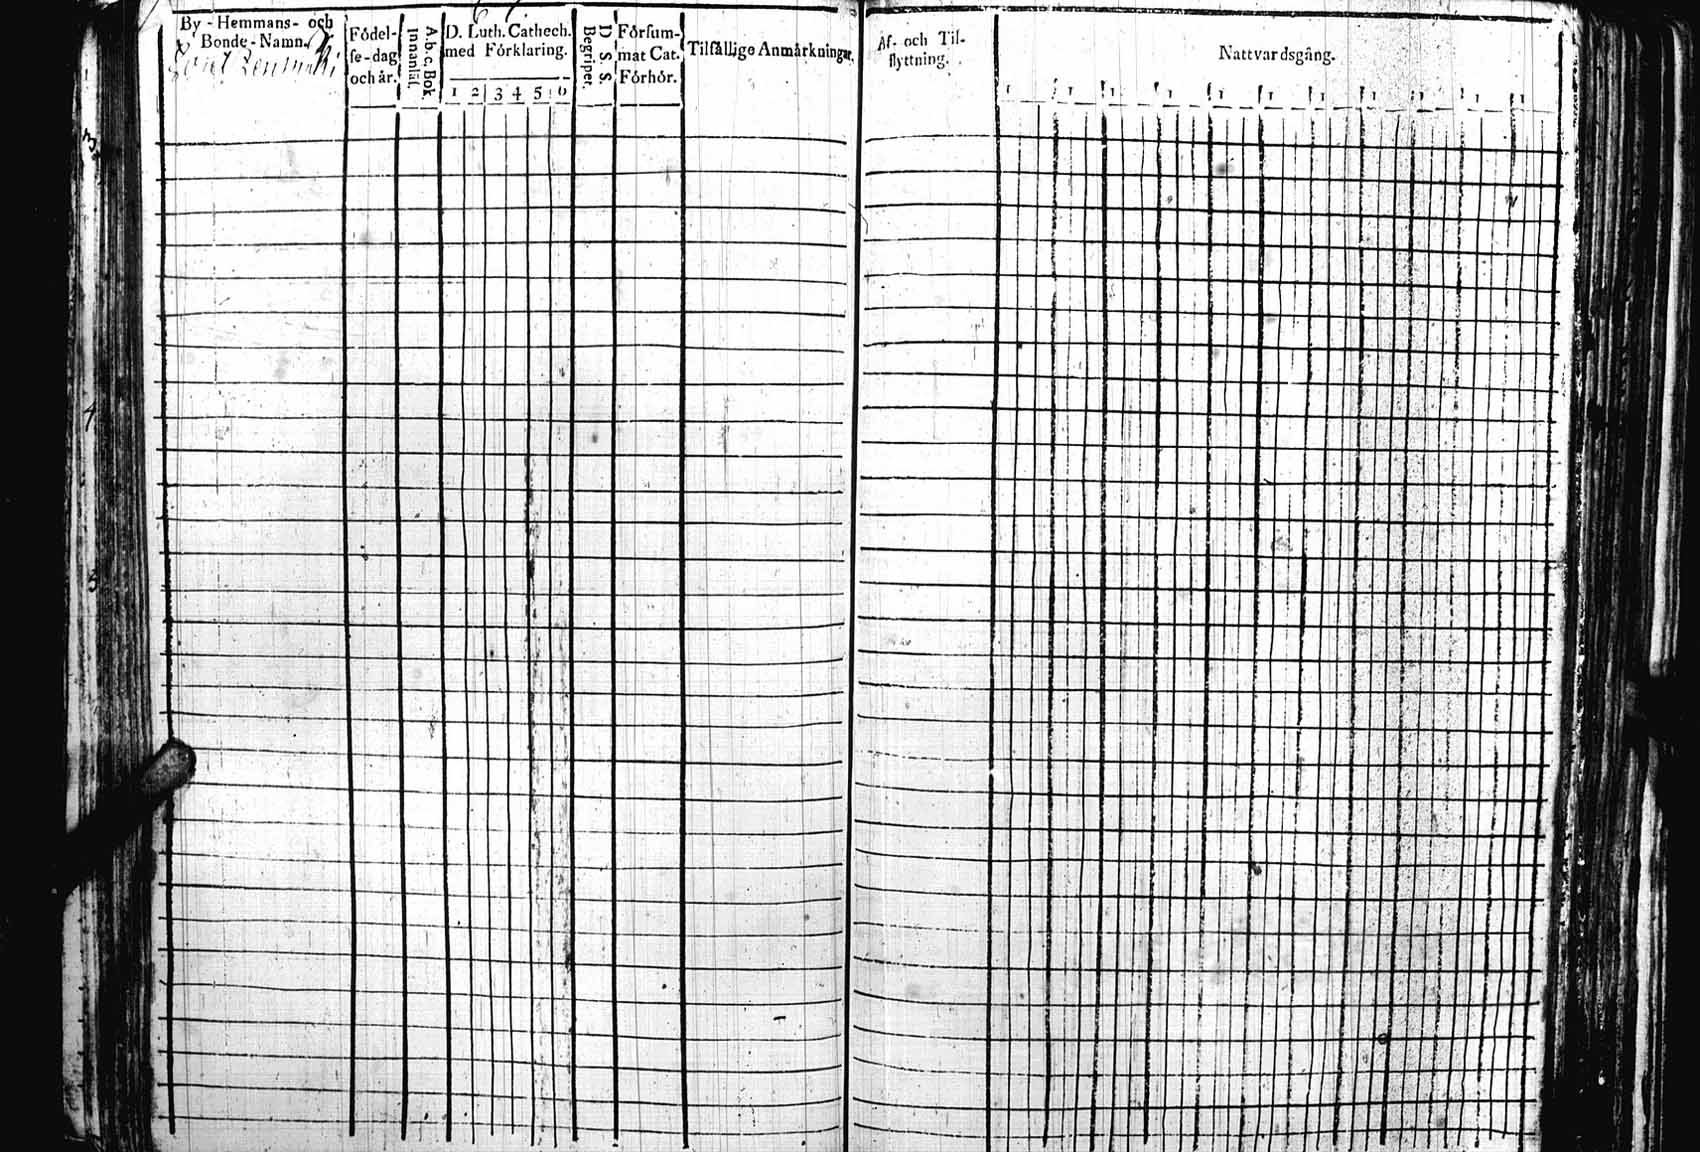 By - Hemmans- och
Bonde - Namn.
Födel-
se-dag
och år.
A.b.c. Bok.
Innanläs.
D. Luth. Cathech.
med Förklaring.
1 2 3 4 5 6
D. S. S.
Begripet.
Försum-
mat Cat.
Förhör.
Tilfällige Anmärkningar.
Af- och Til-
flyttning.
Nattvardsgång.
3
4
5